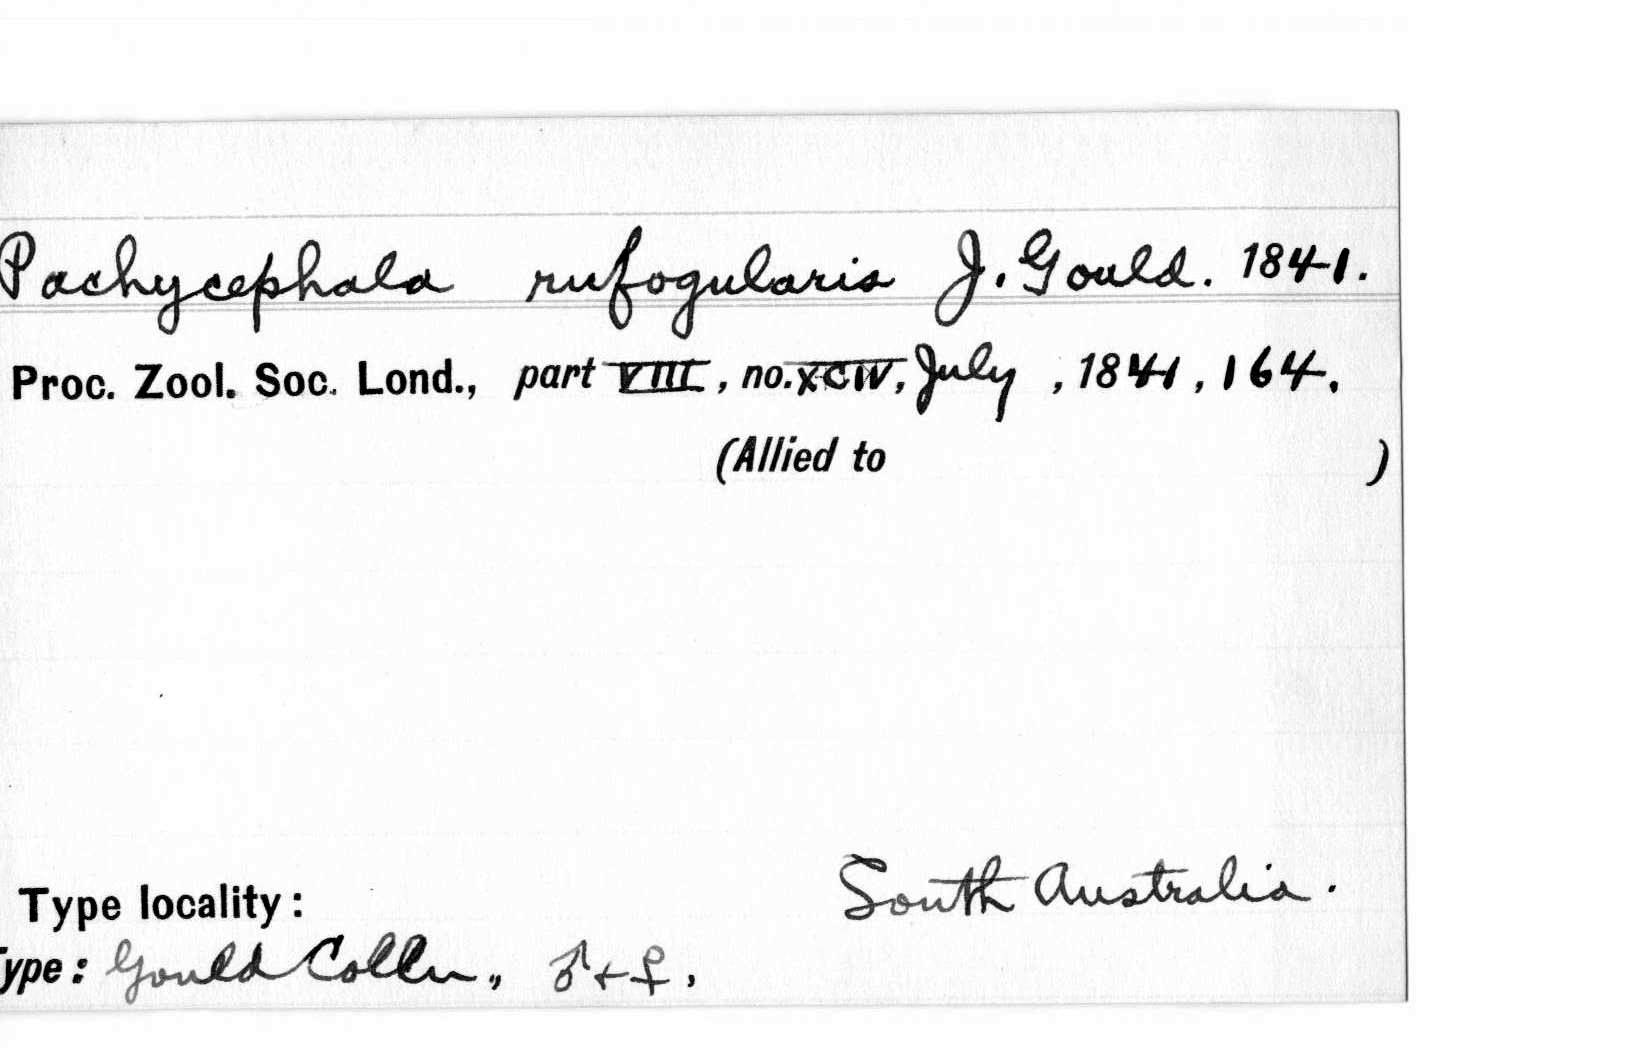 Pachycephala rufogularis J. Gould. 1841.
Proc. Zool. Soc. Lond., part VIII, no. XCIV, July, 1841, 164.
(Allied to )
Type locality: South Australia.
Type: Gould Colln., ♂ + ♀,